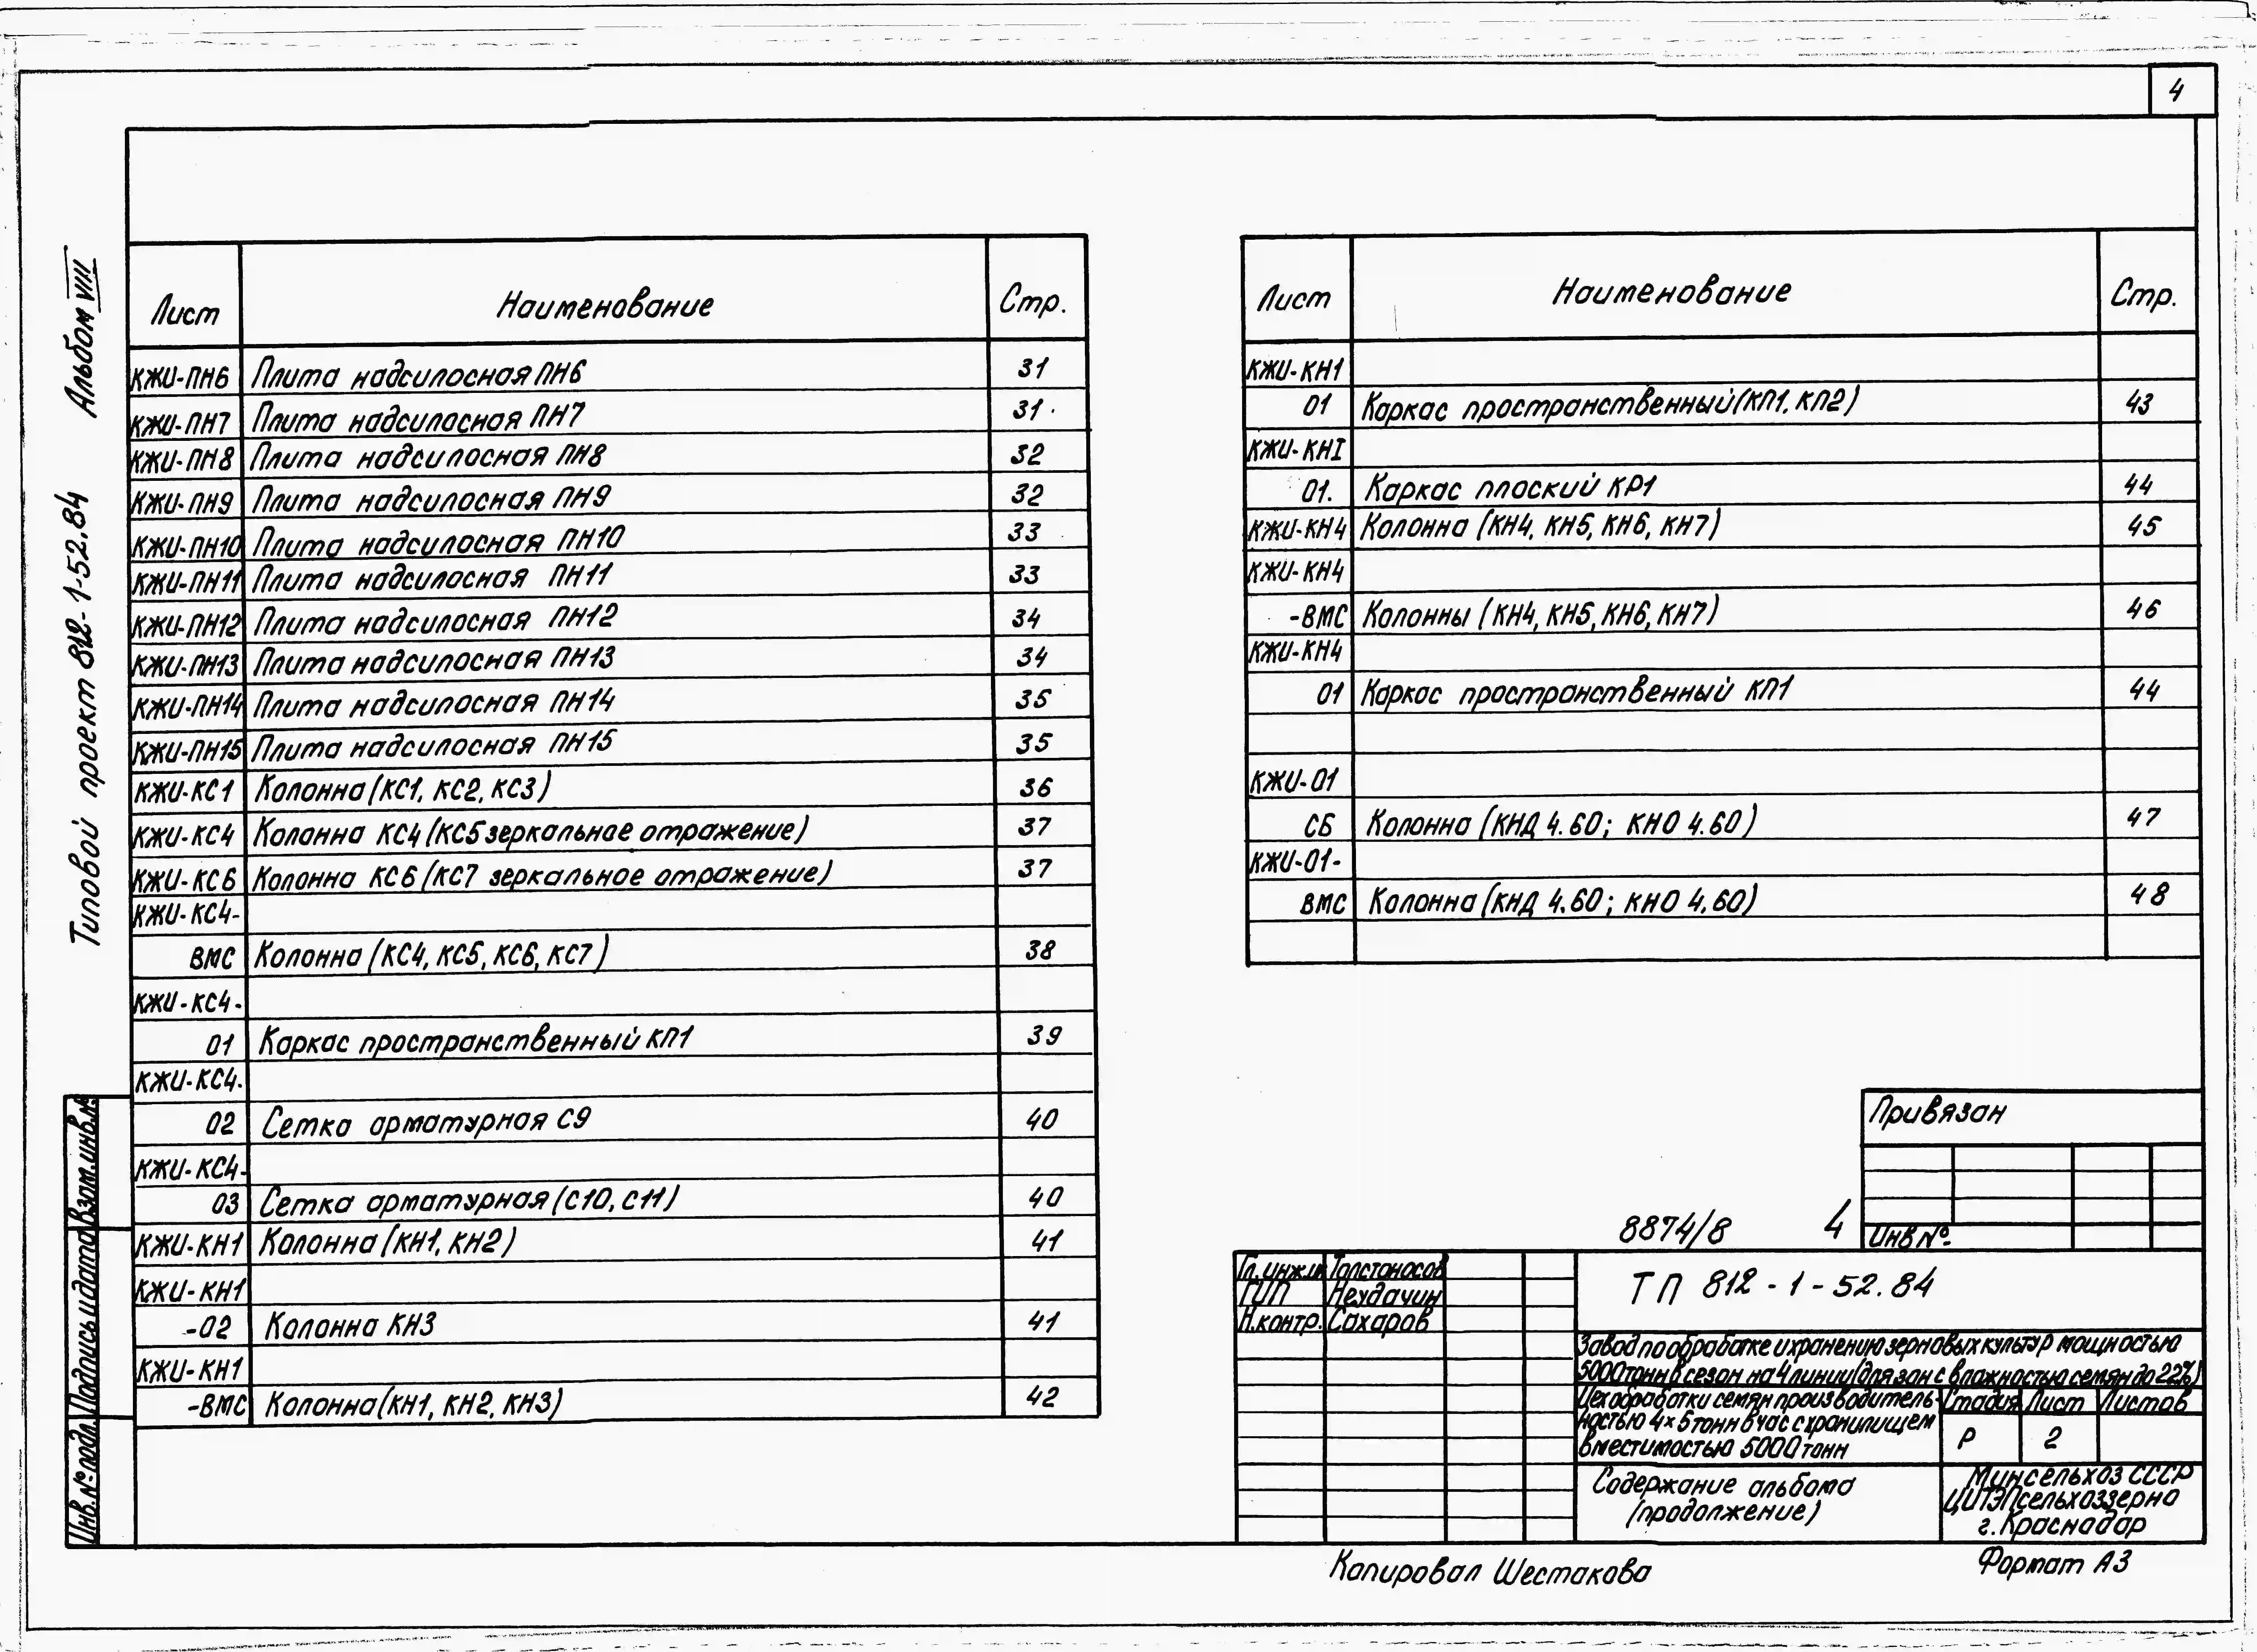 4
Типовой проект 812-1-52.84 Альбом VIII
Лист Наименование Стр.
КЖИ-ПН6 Плита надсилосная ПН6 31
КЖИ-ПН7 Плита надсилосная ПН7 31
КЖИ-ПН8 Плита надсилосная ПН8 32
КЖИ-ПН9 Плита надсилосная ПН9 32
КЖИ-ПН10 Плита надсилосная ПН10 33
КЖИ-ПН11 Плита надсилосная ПН11 33
КЖИ-ПН12 Плита надсилосная ПН12 34
КЖИ-ПН13 Плита надсилосная ПН13 34
КЖИ-ПН14 Плита надсилосная ПН14 35
КЖИ-ПН15 Плита надсилосная ПН15 35
КЖИ-КС1 Колонна (КС1, КС2, КС3) 36
КЖИ-КС4 Колонна КС4 (КС5 зеркальное отражение) 37
КЖИ-КС6 Колонна КС6 (КС7 зеркальное отражение) 37
КЖИ-КС4-
ВМС Колонна (КС4, КС5, КС6, КС7) 38
КЖИ-КС4-
01 Каркас пространственный КП1 39
КЖИ-КС4-
02 Сетка арматурная С9 40
КЖИ-КС4-
03 Сетка арматурная (С10, С11) 40
КЖИ-КН1 Колонна (КН1, КН2) 41
КЖИ-КН1
-02 Колонна КН3 41
КЖИ-КН1
-ВМС Колонна (КН1, КН2, КН3) 42
Лист Наименование Стр.
КЖИ-КН1
01 Каркас пространственный (КП1, КП2) 43
КЖИ-КНI
01. Каркас плоский КР1 44
КЖИ-КН4 Колонна (КН4, КН5, КН6, КН7) 45
КЖИ-КН4
-ВМС Колонны (КН4, КН5, КН6, КН7) 46
КЖИ-КН4
01 Каркас пространственный КП1 44
КЖИ-01
СБ Колонна (КНД 4.60; КНО 4.60) 47
КЖИ-01-
ВМС Колонна (КНД 4.60; КНО 4.60) 48
Привязан
Инв №
8874/8 4
Гл. инж. Толстоносов
ГИП Неудачин
Н.контр. Сахаров
ТП 812-1-52.84
Завод по обработке и хранению зерновых культур мощностью
5000 тонн в сезон на 4 линии (для зон с влажностью семян до 22%)
Цех обработки семян производитель-
ностью 4×5 тонн в час с хранилищем
вместимостью 5000 тонн
Стадия Лист Листов
Р 2
Содержание альбома
(продолжение)
Минсельхоз СССР
ЦИТЭПсельхоззерно
г. Краснодар
Копировал Шестакова
Формат А3
Инв.№ подл. Подпись и дата Взам.инв.№